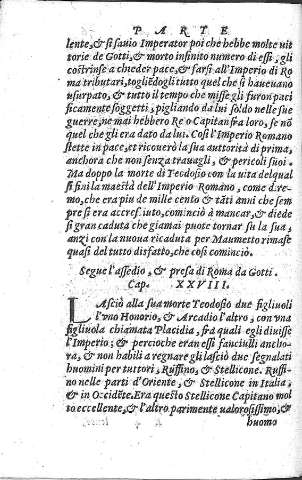 PARTE
lente, & sì sauio Imperator poi che hebbe molte uit
torie de Gotti, & morto infinito numero di essi, gli
costrinse a chieder pace, & farsi all'Imperio di Ro
ma tributari, togliēdogli tutto quel che si haueuano
usurpato, & tutto il tempo che uisse gli furon paci
ficamente soggetti, pigliando da lui soldo nelle sue
guerre, ne mai hebbero Re o Capitan fra loro, se nō
quel che gli era dato da lui. Cosi l'Imperio Romano
stette in pace, et ricouerò la sua autorità di prima,
anchora che non senza trauagli, & pericoli suoi.
Ma doppo la morte di Teodosio con la uita del qual
si finì la maestà dell'Imperio Romano, come d.re-
mo, che era piu de mille cento & tāti anni che sem
pre si era accresciuto, cominciò à mancar, & diede
si gran caduta che giamai puote tornar su la sua,
anzi con la nuoua ricaduta per Maumetto rimase
quasi del tutto disfatto, che così cominciò.
Segue l'assedio, & presa di Roma da Gotti.
Cap. XXVIII.
LAsciò alla sua morte Teodosio due figliuoli
l'uno Honorio, & Arcadio l'altro, con una
figliuola chiamata Placidia, fra quali egli diuisse
l'Imperio; & percioche eran essi fanciulli ancho-
ra, & non habili a regnare gli lasciò due segnalati
huomini per tuttori, Ruffino, & Stellicone. Ruffi-
no nelle parti d'Oriente, & Stellicone in Italia,
& in Occidēte. Era questo Stellicone Capitano mol
to eccellente, & l'altro parimente ualorosissimo, &
huomo